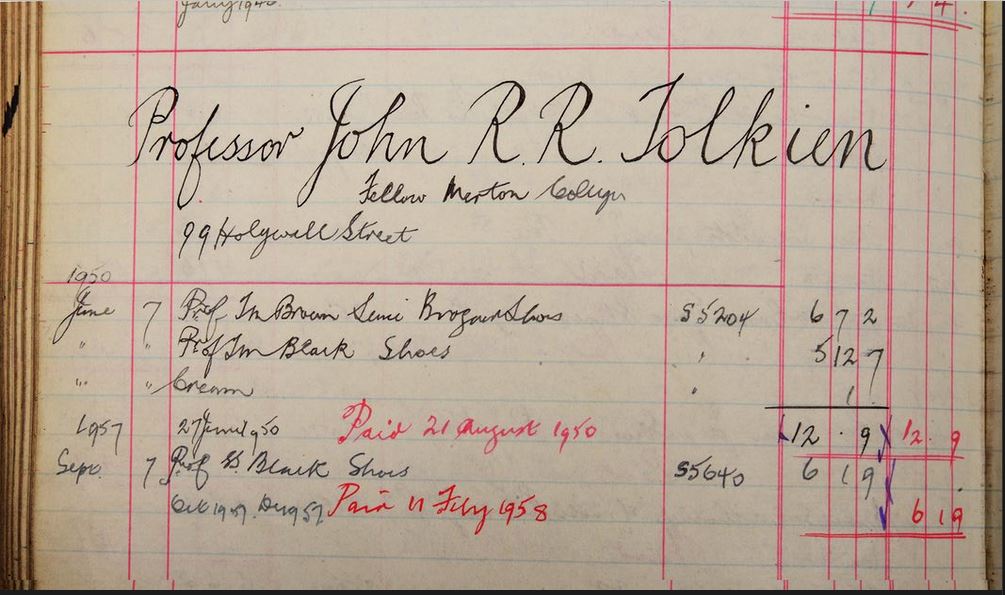 Jany 194
4.
Professor John R.R. Tolkien
Fellow Merton College
99 Holywall Street
1950
June 7 Prof Tn Brown Semi Brogue Shoes S5204 6 7 2
" " Prof Tn Black Shoes " 5 12 7
" " Cream " 1
27 June 1950 Paid 21 August 1950 12 · 9 12 · 9
1957
Sept. 7 Prof Black Shoes S5640 6 19
Oct 1957. Dec 1957 Paid 11 Feby 1958 6 19